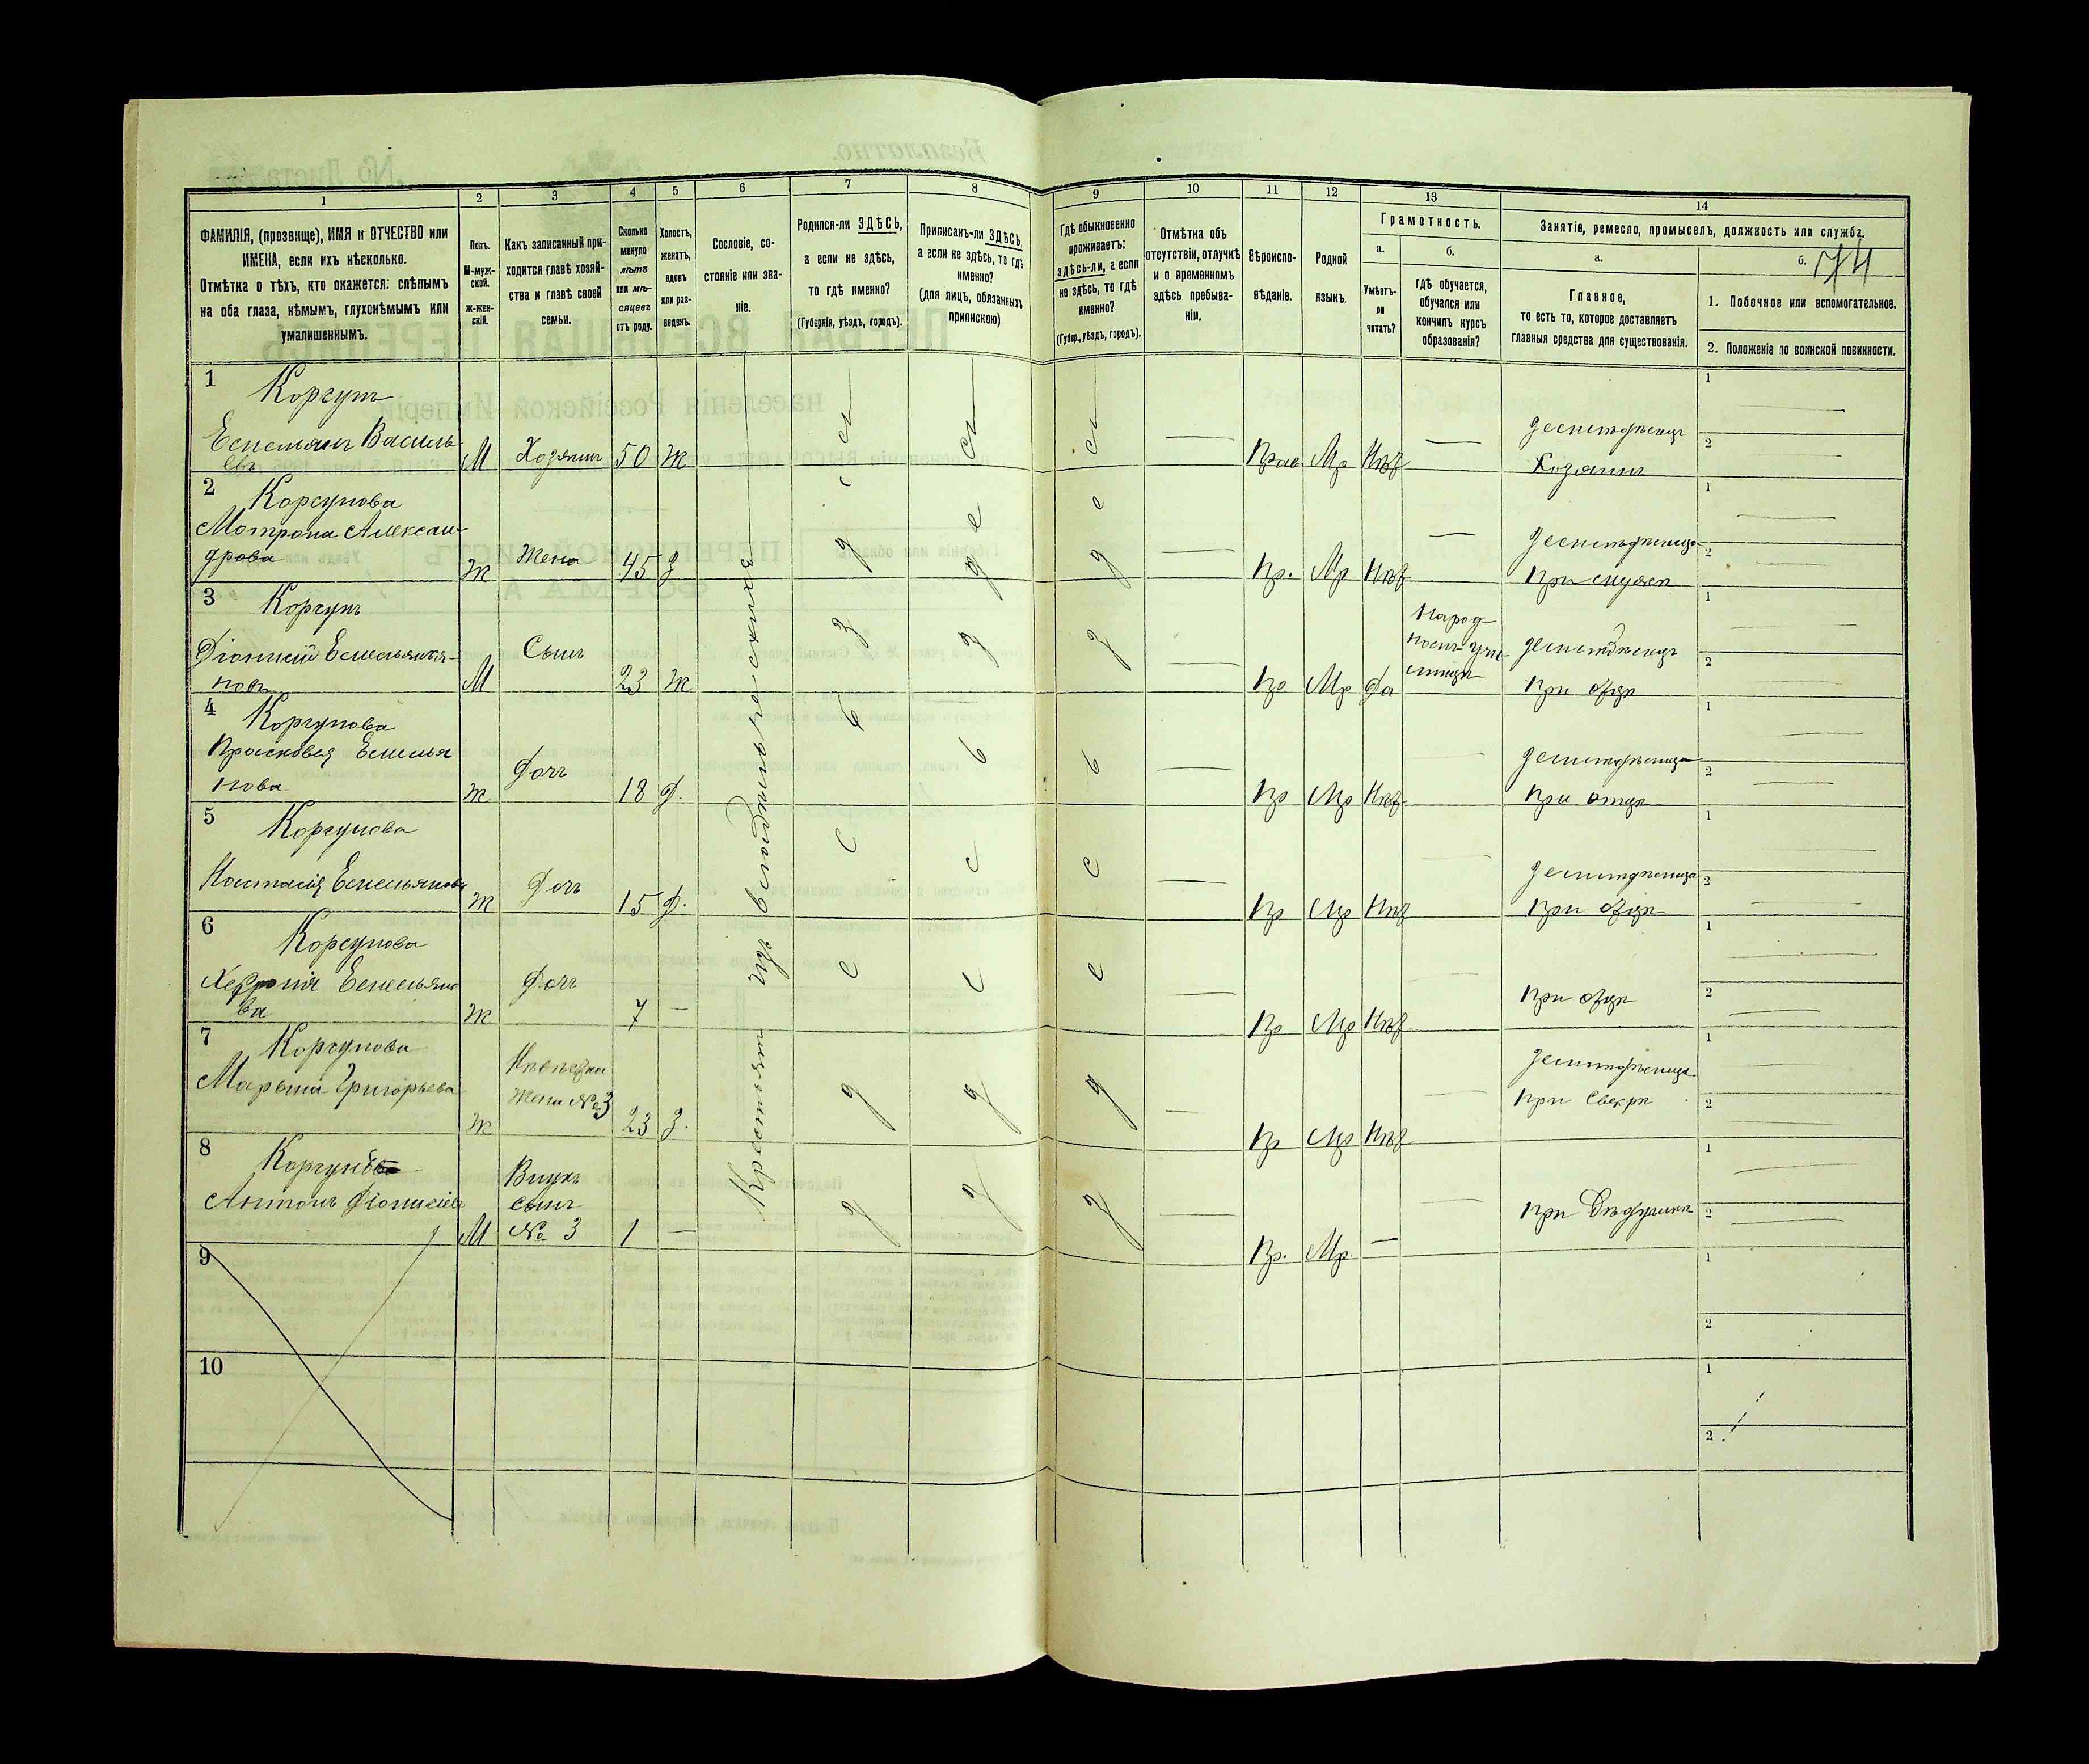 1 2 3 4 5 6 7 8 9 10 11 12 13 14
ФАМИЛІЯ, (прозвище), ИМЯ и ОТЧЕСТВО или
ИМЕНА, если ихъ нѣсколько.
Отмѣтка о тѣхъ, кто окажется: слѣпымъ
на оба глаза, нѣмымъ, глухонѣмымъ или
умалишеннымъ.
Полъ.
М-муж-
ской.
Ж-жен-
скій.
Какъ записанный при-
ходится главѣ хозяй-
ства и главѣ своей
семьи.
Сколько
минуло
лѣтъ
или мѣ-
сяцевъ
отъ роду.
Холостъ,
женатъ,
вдовъ
или раз-
веденъ.
Сословіе, со-
стояніе или зва-
ніе.
Родился-ли ЗДѢСЬ,
а если не здѣсь,
то гдѣ именно?
(Губернія, уѣздъ, городъ).
Приписанъ-ли ЗДѢСЬ,
а если не здѣсь, то гдѣ
именно?
(для лицъ, обязанныхъ
припискою)
Гдѣ обыкновенно
проживаетъ:
здѣсь-ли, а если
не здѣсь, то гдѣ
именно?
(Губер., уѣздъ, городъ).
Отмѣтка объ
отсутствіи, отлучкѣ
и о временномъ
здѣсь пребыва-
ніи.
Вѣроиспо-
вѣданіе.
Родной
языкъ.
Грамотность.
а.
Умѣетъ-
ли
читать?
б.
гдѣ обучается,
обучался или
кончилъ курсъ
образованія?
Занятіе, ремесло, промыселъ, должность или служба.
а.
Главное,
то есть то, которое доставляетъ
главныя средства для существованія.
б.
74
1. Побочное или вспомогательное.
2. Положеніе по воинской повинности.
Крестьян изъ владѣльческихъ
1
Коргун
Емельянъ Василь
евъ
М Хозяинъ 50 Ж
Прав. Мр Нѣт
земледѣлецъ
Хозяинъ
1
2
2
Коргунова
Мотрона Алексан-
дрова
Ж Жена 45 З
Пр. Мр Нѣт
земледѣлица
При мужѣ
1
2
3
Коргунъ
Діонисій Емельяно-
новъ
М Сынъ 23 Ж
Пр Мр Да
Народ
земледѣлецъ
При отцѣ
1
2
4
Коргунова
Прасковья Емелья
нова
Ж Дочь 18 Д.
Пр Мр Нѣт
земледѣлица
При отцѣ
1
2
5
Коргунова
Настасія Емельянова
Ж Дочь 15 Д.
Пр Мр Нѣт
земледѣлица
При отцѣ
1
2
6
Коргунова
Емельяно
ва
Ж Дочь 7
Пр Мр Нѣт
При отцѣ
1
2
7
Коргунова
Марьяна Григорьева
Ж Невѣстка
Жена № 3
23 З.
Пр Мр Нѣт
земледѣлица
При Свекрѣ
1
2
8
Коргунъ
Антонъ Діонисіевъ
М Внукъ
сынъ
№ 3
1
Пр. Мр.
При Дѣдушкѣ
1
2
9
1
2
10
1
2